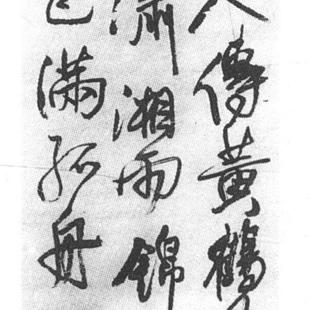 人傳黄鶴
瀟湘雨錦
已滿孤舟